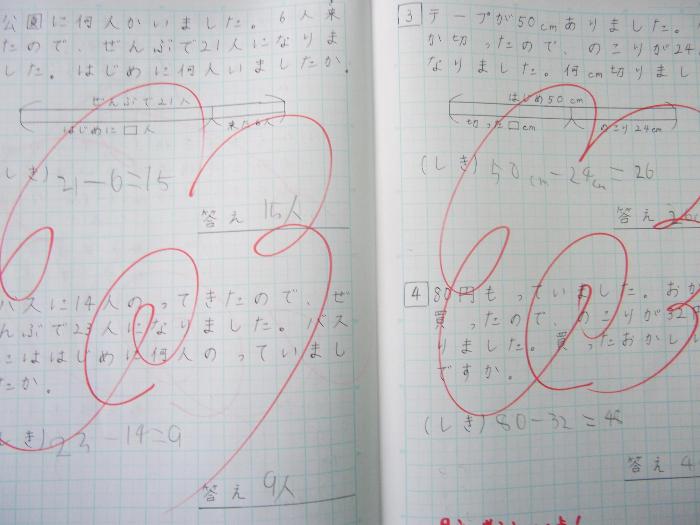 公園に何人かいました。6人来
たので、ぜんぶで21人になりま
した。はじめに何人いましたか。
ぜんぶで21人
はじめに□人
来た6人
しき) 21-6=15
答え 15人
バスに14人のってきたので、ぜ
んぶで23人になりました。バス
にははじめに何人のっていまし
たか。
しき) 23-14=9
答え 9人
3 テープが50cmありました。
か切ったので、のこりが24
なりました。何cm切りまし
はじめ50cm
切った□cm
のこり24cm
(しき) 50cm-24cm=26
答え 26
4 80円もっていました。おか
買ったので、のこりが32円
りました。買ったおかしい
ですか。
(しき) 80-32=48
答え 4